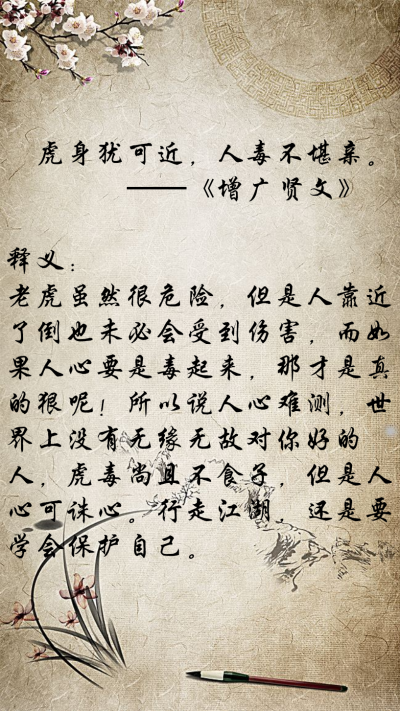 虎身犹可近，人毒不堪亲。
——《增广贤文》
释义：
老虎虽然很危险，但是人靠近
了倒也未必会受到伤害，而如
果人心要是毒起来，那才是真
的狠呢！所以说人心难测，世
界上没有无缘无故对你好的
人，虎毒尚且不食子，但是人
心可诛心。行走江湖，还是要
学会保护自己。